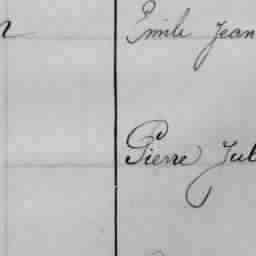 Emile Jean
Pierre Jul